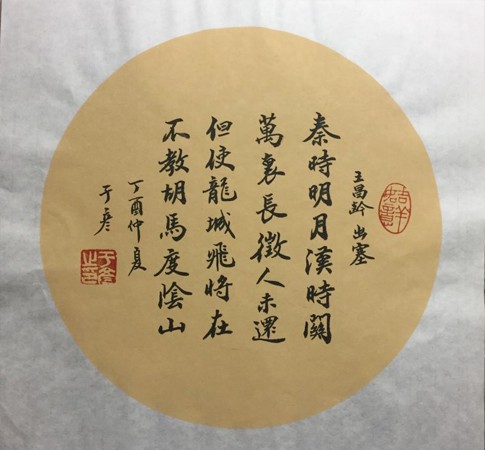 王昌齡 出塞
秦時明月漢時關
萬裏長徵人未還
但使龍城飛將在
不教胡馬度陰山
丁酉仲夏
于彦
于彦之印